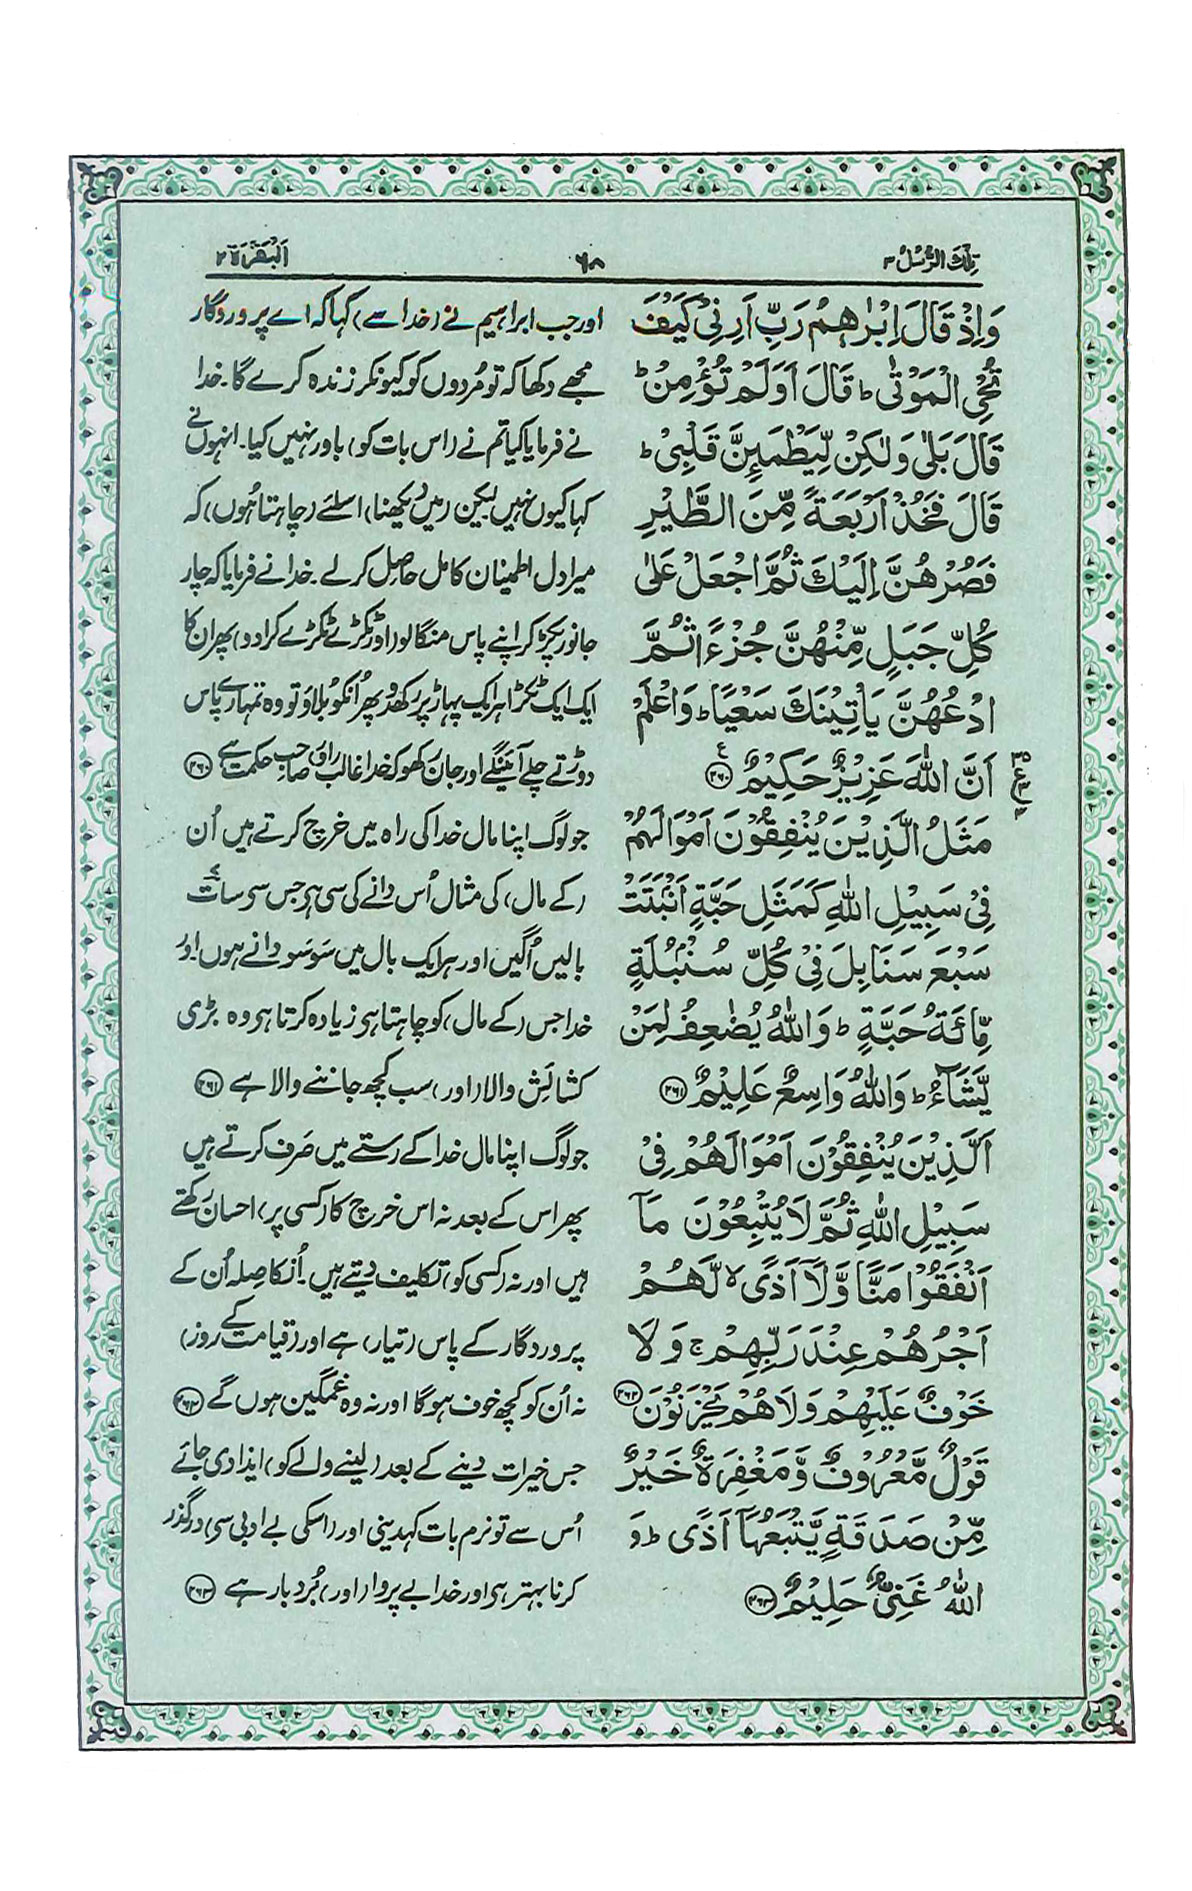 تِلْكَ الرُّسُلُ ۳
۶۸
اَلْبَقَرَة ۲
وَاِذْ قَالَ اِبْرٰهٖمُ رَبِّ اَرِنِيْ كَيْفَ
تُحْيِ الْمَوْتٰى ؕ قَالَ اَوَلَمْ تُؤْمِنْ ؕ
قَالَ بَلٰى وَلٰكِنْ لِّيَطْمَئِنَّ قَلْبِيْ ؕ
قَالَ فَخُذْ اَرْبَعَةً مِّنَ الطَّيْرِ
فَصُرْهُنَّ اِلَيْكَ ثُمَّ اجْعَلْ عَلٰى
كُلِّ جَبَلٍ مِّنْهُنَّ جُزْءًا ثُمَّ
ادْعُهُنَّ يَاْتِيْنَكَ سَعْيًا ؕ وَاعْلَمْ
اَنَّ اللّٰهَ عَزِيْزٌ حَكِيْمٌ ۲۶۰
مَثَلُ الَّذِيْنَ يُنْفِقُوْنَ اَمْوَالَهُمْ
فِيْ سَبِيْلِ اللّٰهِ كَمَثَلِ حَبَّةٍ اَنْۢبَتَتْ
سَبْعَ سَنَابِلَ فِيْ كُلِّ سُنْۢبُلَةٍ
مِّائَةُ حَبَّةٍ ؕ وَاللّٰهُ يُضٰعِفُ لِمَنْ
يَّشَآءُ ؕ وَاللّٰهُ وَاسِعٌ عَلِيْمٌ ۲۶۱
اَلَّذِيْنَ يُنْفِقُوْنَ اَمْوَالَهُمْ فِيْ
سَبِيْلِ اللّٰهِ ثُمَّ لَا يُتْبِعُوْنَ مَآ
اَنْفَقُوْا مَنًّا وَّلَآ اَذًى ۙ لَّهُمْ
اَجْرُهُمْ عِنْدَ رَبِّهِمْ ۚ وَلَا
خَوْفٌ عَلَيْهِمْ وَلَا هُمْ يَحْزَنُوْنَ ۲۶۲
قَوْلٌ مَّعْرُوْفٌ وَّمَغْفِرَةٌ خَيْرٌ
مِّنْ صَدَقَةٍ يَّتْبَعُهَآ اَذًى ؕ وَ
اللّٰهُ غَنِيٌّ حَلِيْمٌ ۲۶۳
اور جب ابراہیم نے (خدا سے) کہا کہ اے پروردگار
مجھے دکھا کہ تو مُردوں کو کیونکر زندہ کرے گا۔ خدا
نے فرمایا کیا تم نے (اس بات کو) باور نہیں کیا۔ انہوں نے
کہا کیوں نہیں لیکن (میں دیکھنا) اسلئے (چاہتا ہوں) کہ
میرا دل اطمینان کامل حاصل کر لے۔ خدا نے فرمایا کہ چار
جانور پکڑ کر اپنے پاس منگا لو (اور ٹکڑے ٹکڑے کرا دو) پھر ان کا
ایک ایک ٹکڑا ہر ایک پہاڑ پر رکھدو پھر اُنکو بلاؤ تو وہ تمہارے پاس
دوڑتے چلے آئینگے اور جان رکھو کہ خدا غالب (اور) صاحب حکمت ہے ۲۶۰
جو لوگ اپنا مال خدا کی راہ میں خرچ کرتے ہیں اُن
(کے مال) کی مثال اُس دانے کی سی ہی جس سی سات
بالیں اُگیں اور ہر ایک بال میں سَو سَو دانے ہوں۔ اور
خدا جس (کے مال) کو چاہتا ہی زیادہ کرتا ہی وہ بڑی
کشائش والا (اور) سب کچھ جاننے والا ہے ۲۶۱
جو لوگ اپنا مال خدا کے رستے میں صَرف کرتے ہیں
پھر اس کے بعد نہ اس خرچ کا (کسی پر) احسان رکھتے
ہیں اور نہ (کسی کو) تکلیف دیتے ہیں۔ اُنکا صِلہ اُن کے
پروردگار کے پاس (تیار) ہے اور (قیامت کے روز)
نہ اُن کو کچھ خوف ہو گا اور نہ وہ غمگین ہوں گے ۲۶۲
جس خیرات دینے کے بعد (لینے والے کو) ایذا دی جائے
اُس سے تو نرم بات کہدینی اور (اسکی بے ادبی سی) درگذر
کرنا بہتر ہی اور خدا بے پروا (اور) بُردبار ہے ۲۶۳